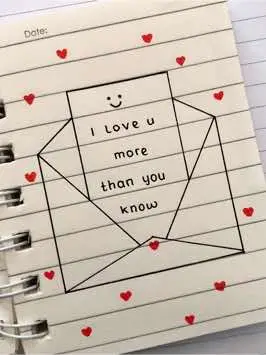 Date:
I Love u
more
than you
know